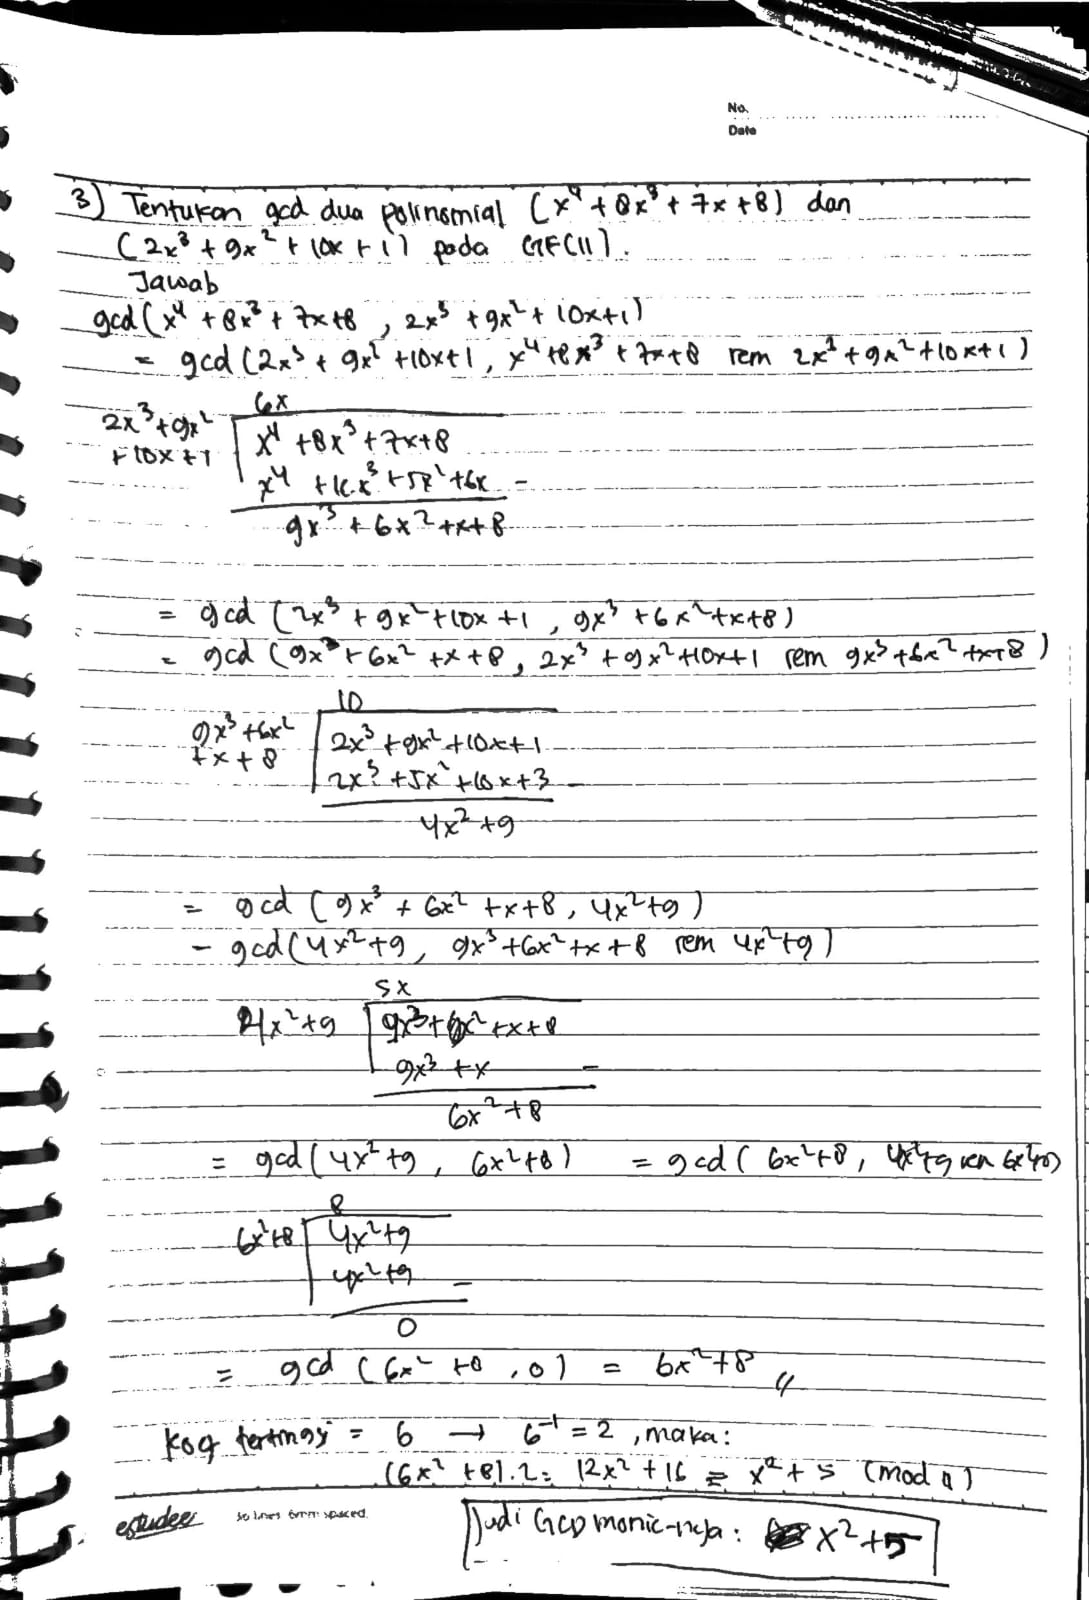 No.
Date
3) Tentukan gcd dua polinomial (x⁴ + 8x³ + 7x + 8) dan
(2x³ + 9x² + 10x + 1) pada GF(11).
Jawab
gcd(x⁴ + 8x³ + 7x+8 , 2x³ + 9x² + 10x+1)
= gcd (2x³ + 9x² + 10x+1, x⁴ + 8x³ + 7x+8 rem 2x³ + 9x² + 10x+1)
6x
2x³ + 9x² x⁴ + 8x³ + 7x+8
+ 10x + 1
x⁴ + 5x² + 6x −
9x³ + 6x² + x + 8
= gcd (2x³ + 9x² + 10x + 1 , 9x³ + 6x² + x + 8)
= gcd (9x³ + 6x² + x + 8, 2x³ + 9x² + 10x+1 rem 9x³ + 6x² + x+8)
10
9x³ + 6x² 2x³ + 9x² + 10x+1
+ x + 8 2x³ + 5x² + 10x + 3 −
4x² + 9
= gcd (9x³ + 6x² + x+8, 4x² + 9)
= gcd(4x² + 9, 9x³ + 6x² + x + 8 rem 4x² + 9)
5x
4x² + 9 9x³ + 6x² + x + 8
9x³ + x −
6x² + 8
= gcd(4x² + 9, 6x² + 8) = gcd(6x² + 8, 4x² + 9 rem 6x² + 8)
8
6x² + 8 4x² + 9
4x² + 9 −
0
= gcd (6x² + 8, 0) = 6x² + 8 //
Koef tertinggi = 6 → 6⁻¹ = 2, maka:
(6x² + 8).2 = 12x² + 16 = x² + 5
estudee 30 lines 6mm spaced.
Jadi GCD monic-nya: x² + 5